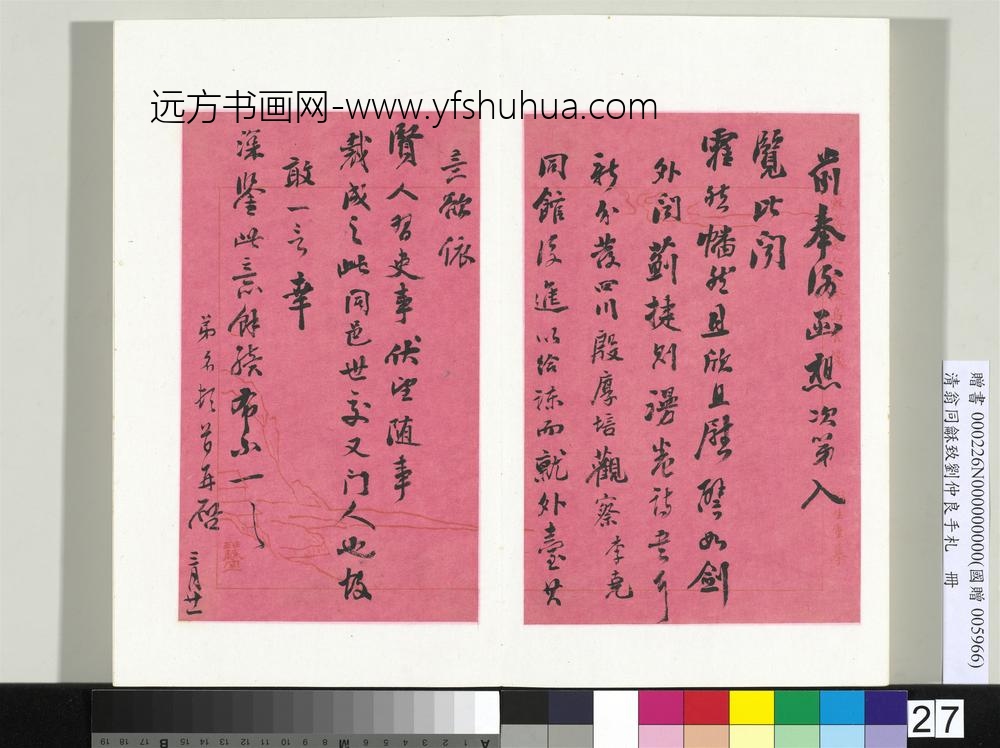 远方书画网-www.yfshuhua.com
前奉數函想次第入
覽比聞
霍然幡然且欣且
譬如劍
外聞薊捷則漫卷詩
新分發四川殷厚培觀察李堯
同館後進以給諫而就外臺其
言欲依
賢人習吏事伏望隨事
裁成之此同邑世交又门人也故
敢一言幸
深鑒此意餘續布不一一
弟名頓首再啟
三月廿一
贈書 000226N000000000(國贈 005966)
清翁同龢致劉仲良手札 冊
27